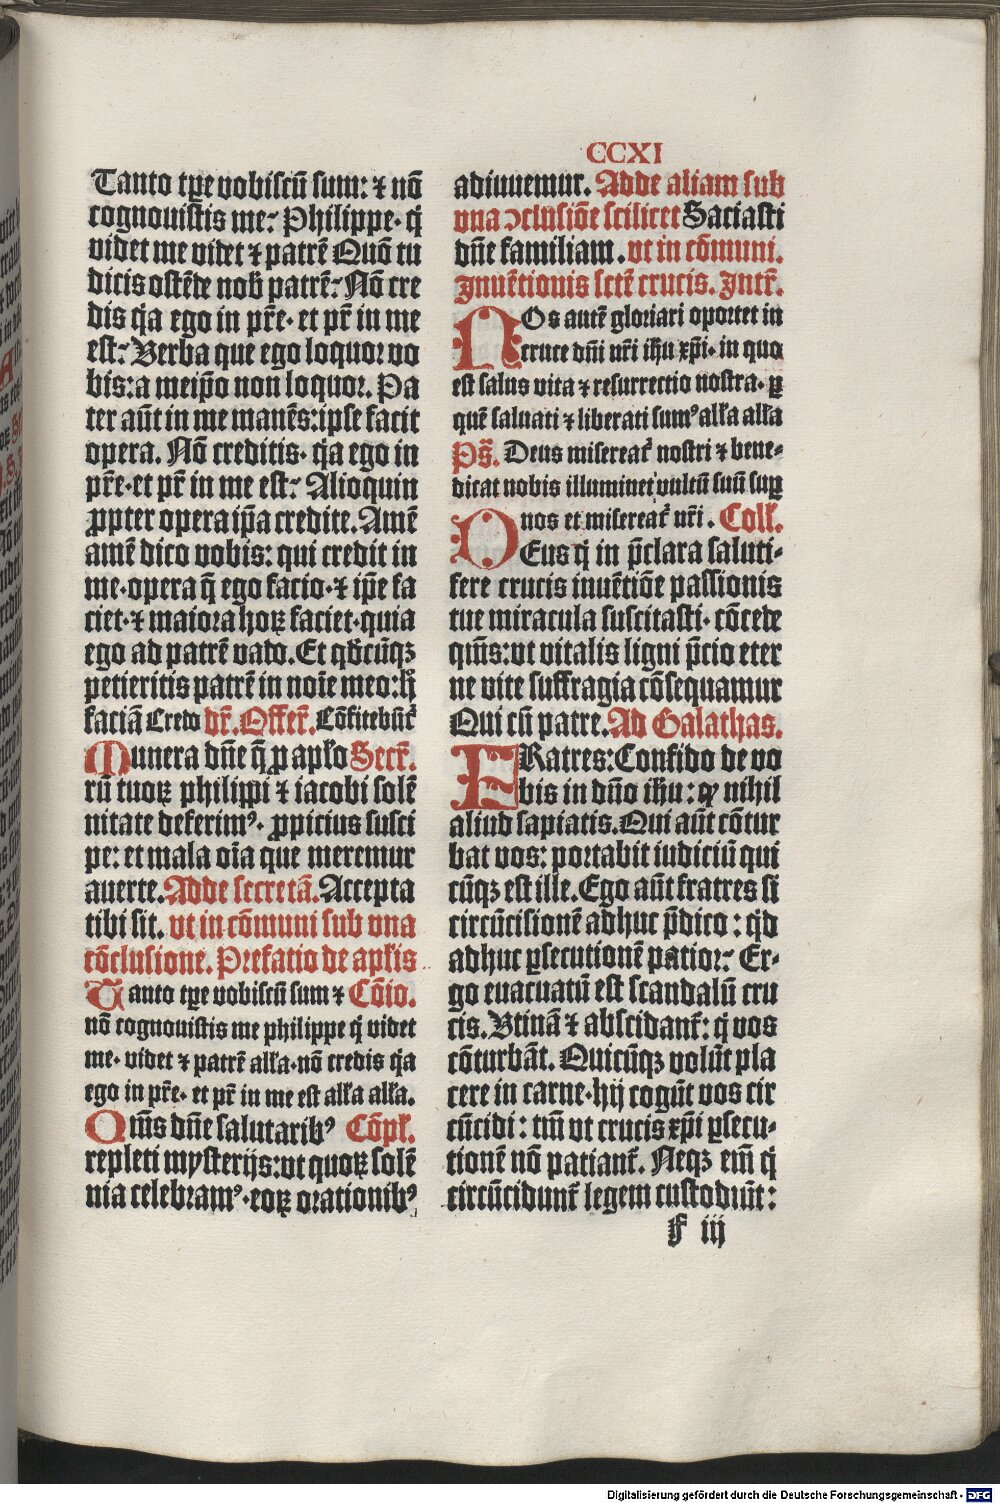 CCXI
Tanto tꝑe vobiscū sum: ⁊ nō
cognouistis me? Philippe· q̇
videt me videt ⁊ patrē Quō tu
dicis ostēde nob̄ patrē? Nō cre
dis q̇a ego in pr̄e· et pr̄ in me
est? Verba que ego loquor vo
bis: a meip̄o non loquor. Pa
ter aūt in me manēs: ipse facit
opera. Nō creditis· q̇a ego in
pr̄e· et pr̄ in me est? Alioquin
ꝓpter opera ip̄a credite. Amē
amē dico vobis: qui credit in
me· opera q̄ ego facio· ⁊ ip̄e fa
ciet· ⁊ maiora hoꝝ faciet· quia
ego ad patrē vado. Et qd̄cūqꝫ
petieritis patrē in noīe meo: h̄
faciā Credo dr̄. Offer̄. Cōfitebūt᷑
Munera dn̄e q̄ ꝓ apło Secr̄.
rū tuoꝝ philippi ⁊ iacobi solē
nitate deferimꝰ· ꝓpicius susci
pe: et mala oīa que meremur
auerte. Adde secretā. Accepta
tibi sit. vt in cōmuni sub vna
cōclusione. Prefatio de apłis
Tanto tꝑe vobiscū sum ⁊ Cōio.
nō cognouistis me philippe q̇ videt
me· videt ⁊ patrē alła· nō credis q̇a
ego in pr̄e· et pr̄ in me est alła alła.
Qm̄s dn̄e salutaribꝰ Cōpł.
repleti mysterijs: vt quoꝝ solē
nia celebramꝰ· eoꝝ orationibꝰ
adiuuemur. Adde aliam sub
vna ↄclusiōe scilicet Saciasti
dn̄e familiam. vt in cōmuni.
Inuētionis sctē crucis. Intr̄.
NOs autē gloriari oportet in
cruce dn̄i nr̄i ihū xp̄i· in quo
est salus vita ⁊ resurrectio nostra· ꝑ
quē saluati ⁊ liberati sumꝰ alła alła
Ps̄. Deus misereat᷑ nostri ⁊ bene-
dicat nobis illuminet vultū suū suꝑ
nos et misereat᷑ nr̄i. Coll̄.
DEus q̇ in p̄clara saluti-
fere crucis inuētiōe passionis
tue miracula suscitasti· cōcede
qm̄s: vt vitalis ligni p̄cio eter
ne vite suffragia cōsequamur
Qui cū patre. Ad Galathas.
FRatres: Confido de vo
bis in dn̄o ihū: ꝙ nihil
aliud sapiatis. Qui aūt cōtur
bat vos: portabit iudiciū qui
cūqꝫ est ille. Ego aūt fratres si
circūcisionē adhuc p̄dico: q̇d
adhuc ꝑsecutionē patior? Er-
go euacuatū est scandalū cru
cis. Vtinā ⁊ abscidant᷑: q̇ vos
cōturbāt. Quicūqꝫ volūt pla
cere in carne· hij cogūt vos cir
cūcidi: tm̄ vt crucis xp̄i ꝑsecu-
tionē nō patiant᷑. Neqꝫ eim̄ q̇
circūcidunt᷑ legem custodiūt:
f iij
Digitalisierung gefördert durch die Deutsche Forschungsgemeinschaft - DFG